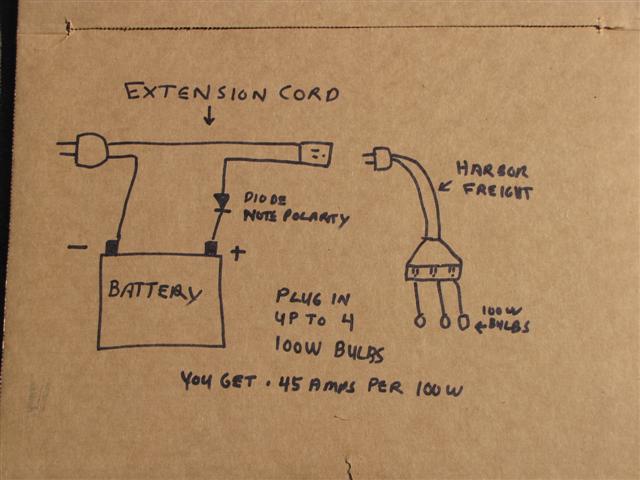 EXTENSION CORD
HARBOR
FREIGHT
DIODE
NOTE POLARITY
- +
BATTERY
PLUG IN
UP TO 4
100W BULBS
100W
BULBS
YOU GET .45 AMPS PER 100W